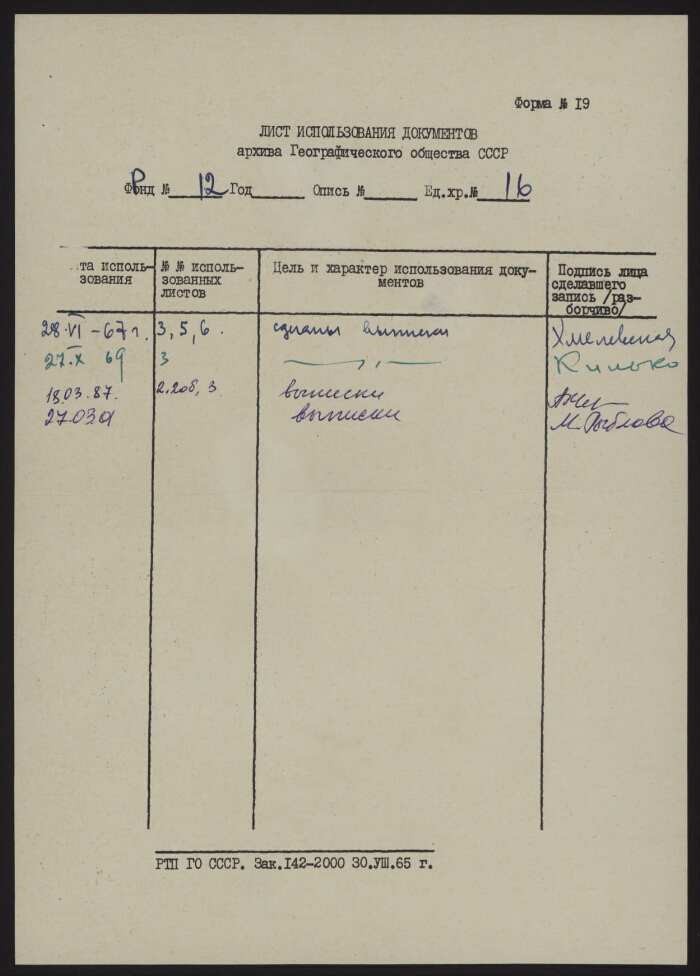 Форма № I9
ЛИСТ ИСПОЛЬЗОВАНИЯ ДОКУМЕНТОВ
архива Географического общества СССР
Фонд № 12 Год Опись № Ед.хр.№ 16
та исполь-
зования
№ № исполь-
зованных
листов
Цель и характер использования доку-
ментов
Подпись лица
сделавшего
запись /раз-
борчиво/
28.VI-67г. 3,5,6. сделаны выписки Хмелевская
27.X 69 3 —„— Килько
18.03.87. 2,2об,3. выписки
выписки М.
РТП ГО СССР. Зак.I42-2000 30.УШ.65 г.